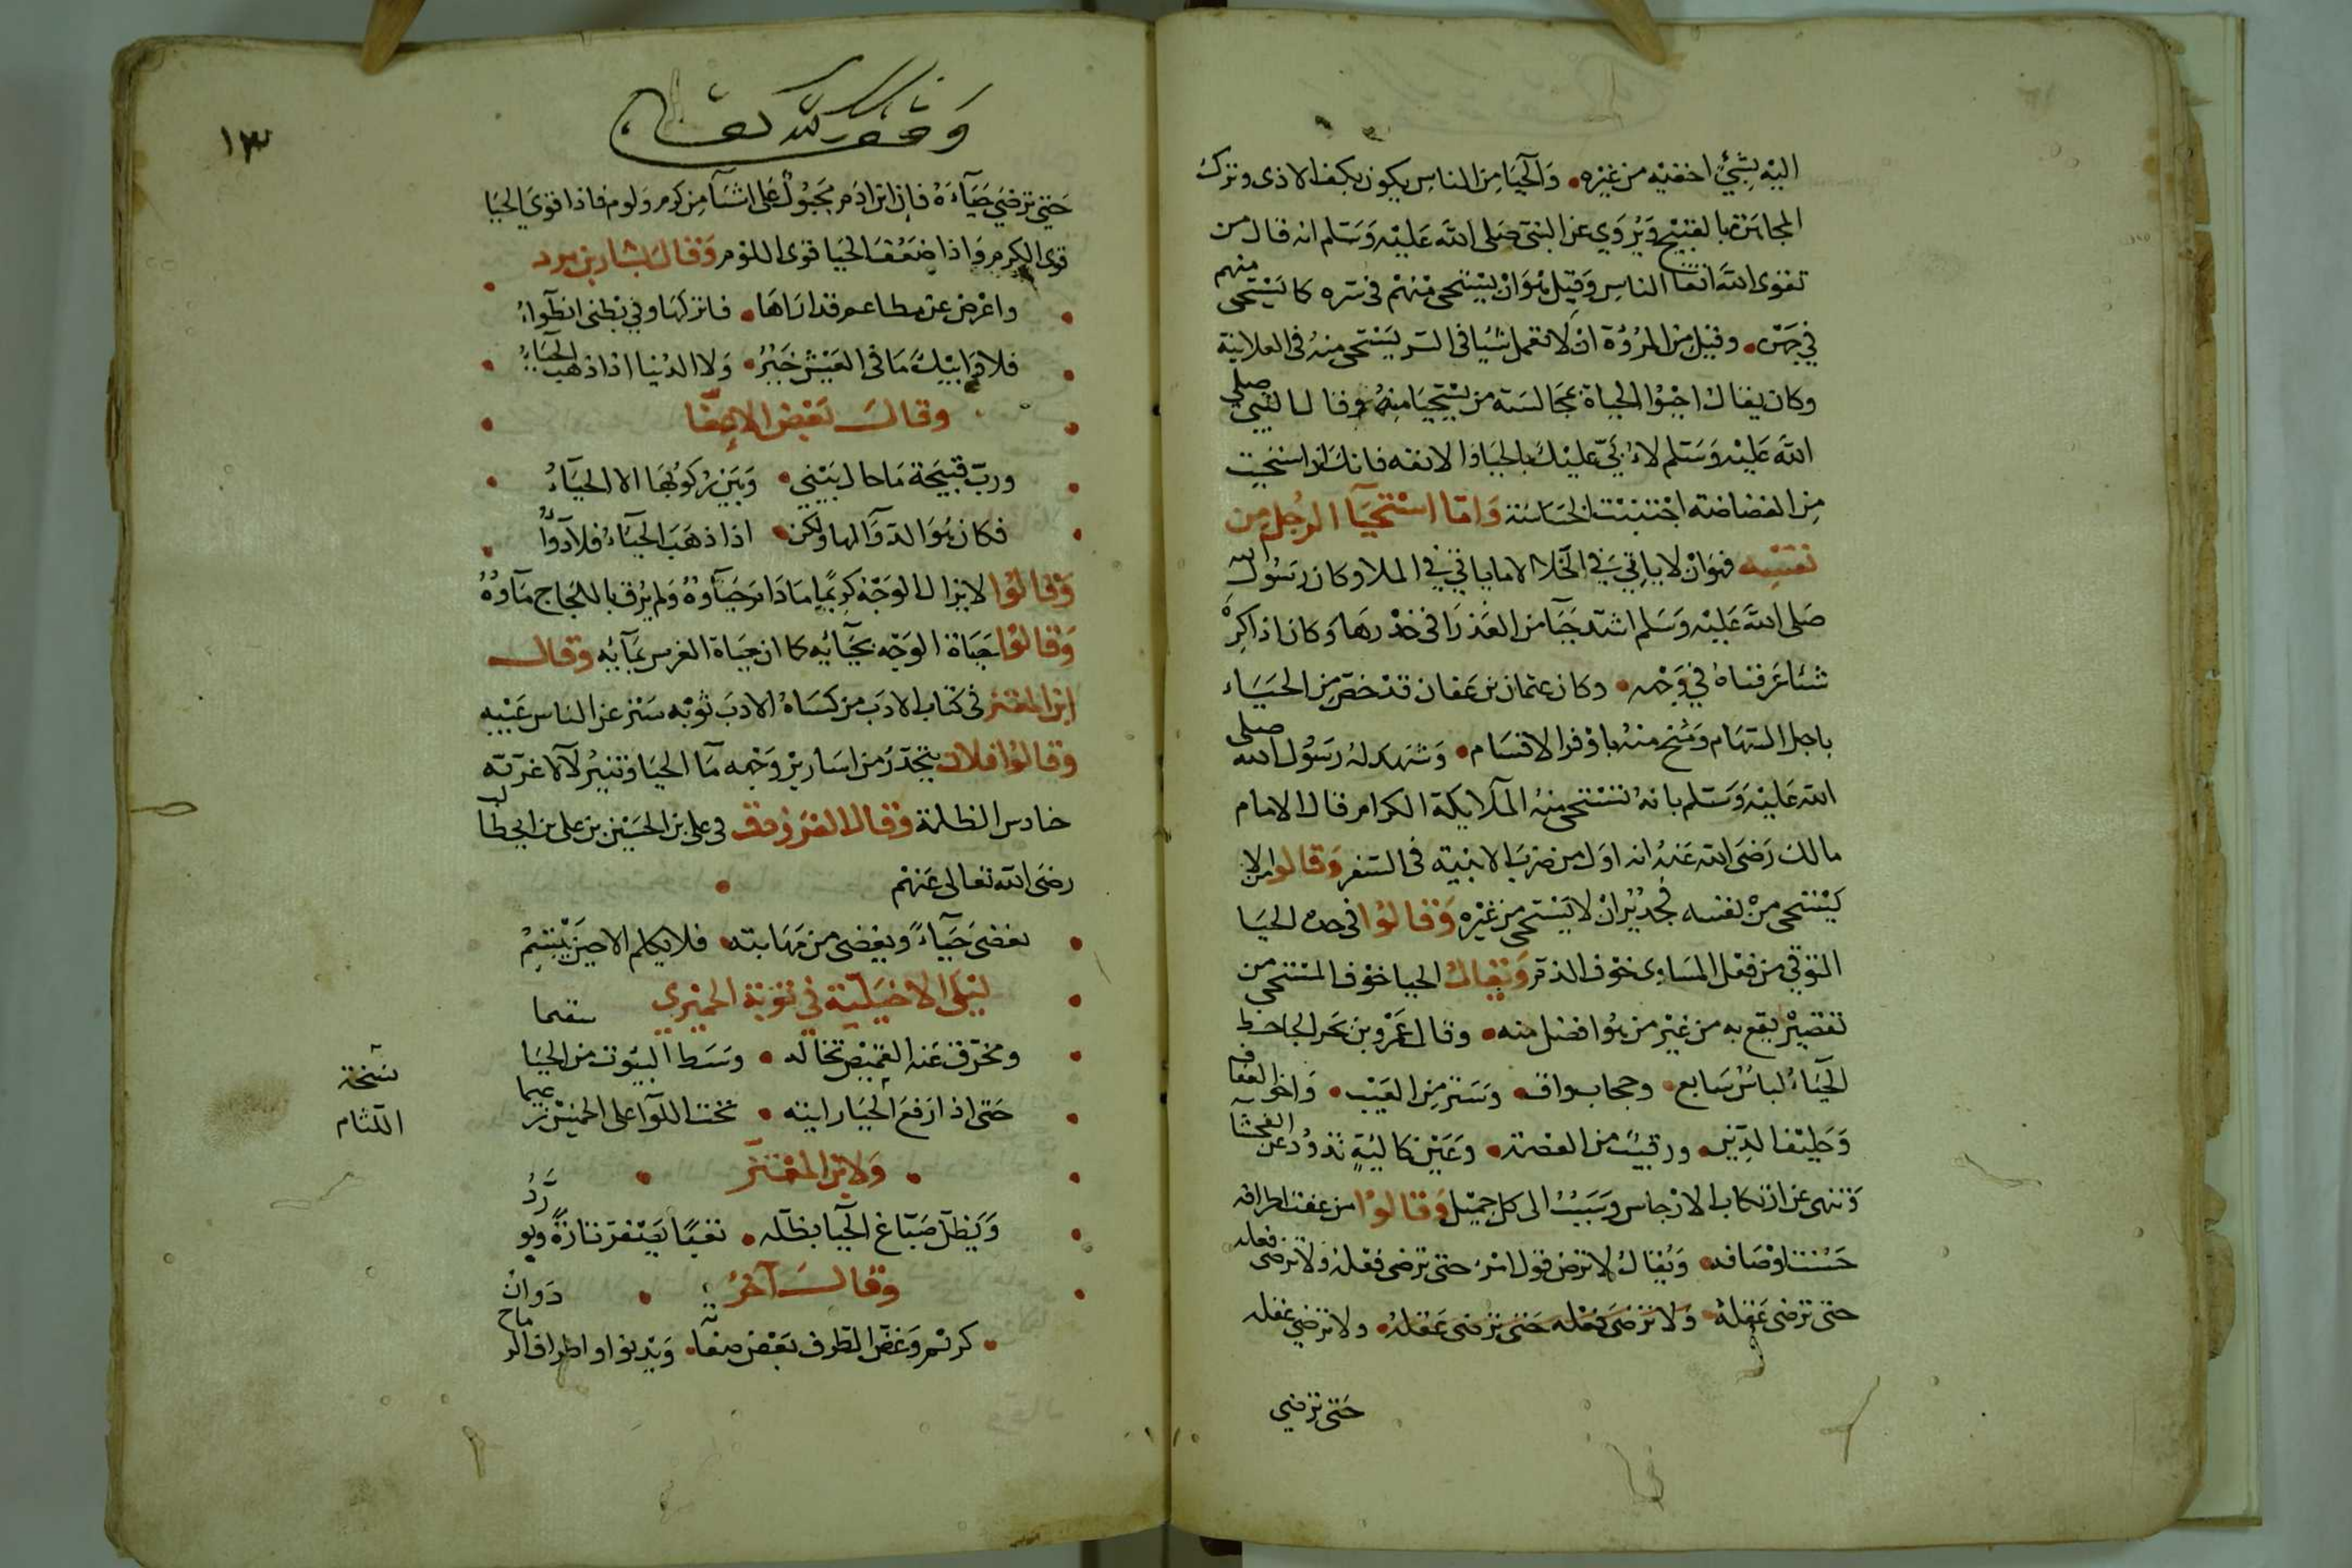 اليه بشيء اخفيه من غيره • وَالحيَا من الناس يكون بكف الاذى وترك
المجاهرة بالقبيْح وَيُروَي عن النبي صَلى الله عَليْه وَسَلم انه قال من
تقوى الله اتقا الناس وَقيل هوَ ان يسْتحى منهُم في سره كما يَسْتحى منهم
في جهره • وقيل من المرُوَّة ان لا تعمل شيًا في السر يَسْتحى منهُ في العلانية
وكان يقال احْيُوا الحياة بمجَالسَة من يُسْتحيَا منهُ وقال النبي صلى
الله عَليْه وَسَلم عليْك بالحيَا والانفه فانك ان استحيت
من الغضاضة اجْتنبْت الخسَاسَة وَامّا اسْتحيَا الرجُل من
نفسِه فهوَ ان لا ياتي في الخلا الا ما ياتي في الملا وكان رسُول الله
صَلى الله عَليْه وَسَلم اشد حَيَا من العَذرَا في خدْرهَا وَكان اذا كرهْ
شئا عَرفناهُ في وَجْهه • وكان عثمان بن عَفان قدْ خصّ من الحيَاء
باجل السهَام وَمُنح منهُ باوْفر الاقسَام • وَشهد لهُ رسُول الله صلى
الله عَليْه وَسَلم بانهُ تسْتحى منهُ الملَايكة الكرام قال الامام
مالك رَضيَ الله عَنهُ انه اول من ضرب الابنية في السَفر وَقالوا من لا
يَسْتحى منْ نفسه فجديْر ان لا يَسْتحى من غيْره وَقالوُا في حد الحيَا
التوقي من فعْل المسَاوى خوْف الذم وَيقال الحيا خوْف المسْتحى من
تقصيْر يقع به من غيْر من هُوَ افضل منه • وقال عَمْرو بن بَحر الجاحظ
الحَيَاءُ لباسٌ سَابع • وحجاب واق • وَسَتر من العَيْب • وَاخو العفاف
وَحَليْف الدِين • ورقيبٌ من العصمة • وَعَيْن كالئةٍ تذوُد عن الفحشا
وَتنهى عن ارتكاب الارْجاس وَسَبَبٌ الى كل جميْل وَقالوُا من عفت اطرافه
حَسُنت اوْصَافه • وَيُقالُ لا ترض قوْل امْرئ حتى ترْضى فعْلهُ ولا ترضى فعله
حتى ترضى عَقلهُ • وَلا تَرْضَى فعْله حَتى ترْضى عَقلهُ • ولا ترْضى عَقله
حَتى ترضي
وقف لله تعالى
١٣
حَتي ترضي حَيَآءَهُ فإن ابن ادَم مَجْبُولٌ عَلى اشيَآ من كرم وَلوم فاذا قوَيَ الحيَا
قوى الكرم وَاذا ضعُفَ الحيَا قوَى اللوْم وَقال بشار بن برد
واعْرض عن مطاعم قد ارَاهَا • فاتركهَا وفي بطنى انطوَاءُ
فلا وَابيْك مَا في العَيْش خَيْرُ • وَلا الدُنيا اذا ذهبَ الحيَاءُ
وقال بَعْض الاعفا
وربّ قبيْحَة مَا حال بَيْنِي • وَبَيْن رُكوُبهَا الا الحيَآءُ
فكان هُوَ الدوَآ لها ولكن • اذا ذهَبَ الحيَآءُ فلا دَوآءُ
وَقالوُا لا يزال الوَجْه كريمًا مَا دَامَ حَيَآؤهُ وَلم يُرق باللجَاج مَآوهُ
وَقالوُا حَيَاة الوَجْه بحيَآئه كما ان حيَاة الغرس بمآئه وقال
ابن المعتز في كتاب الادَب من كسَاهُ الادَب ثوْبه سَتر عن الناس عَيْبه
وَقالوُا فلان يتحَدّرُ من اسَاريْر وَجْهه مَآ الحيَا وَتنيْر لآلا غرّته
حنادس الظلمة وَقال الفرَزدق في علي بن الحسَيْن بن على بن ابي طالب
رضَى الله تعالى عَنهُم
يغضى حَيَآءً ويغضى من مَهَابته • فلا يكلم الا حيْن يبْتَسِمُ
ليْلى الاخيَليّة في توْبَة الحميْري
ومخرّق عَنه القميْص تخاله • وسَط البيُوت من الحيَا سقيما
حَتى اذا رُفعَ الحيَا رايته • تحت اللوَآ على الخميْس زعيما
نسخة
اللثام
وَلابن المعْتز
وَيَظل صَبّاغ الحيَا بظله • تعبًا يعَصْفر تارَةً ويورّدُ
وَقالَ آخرُ
كريْم وَغضّ الطرف بَعْض صفاته • وَيَدْنو واطراف الرماح دَوانُ